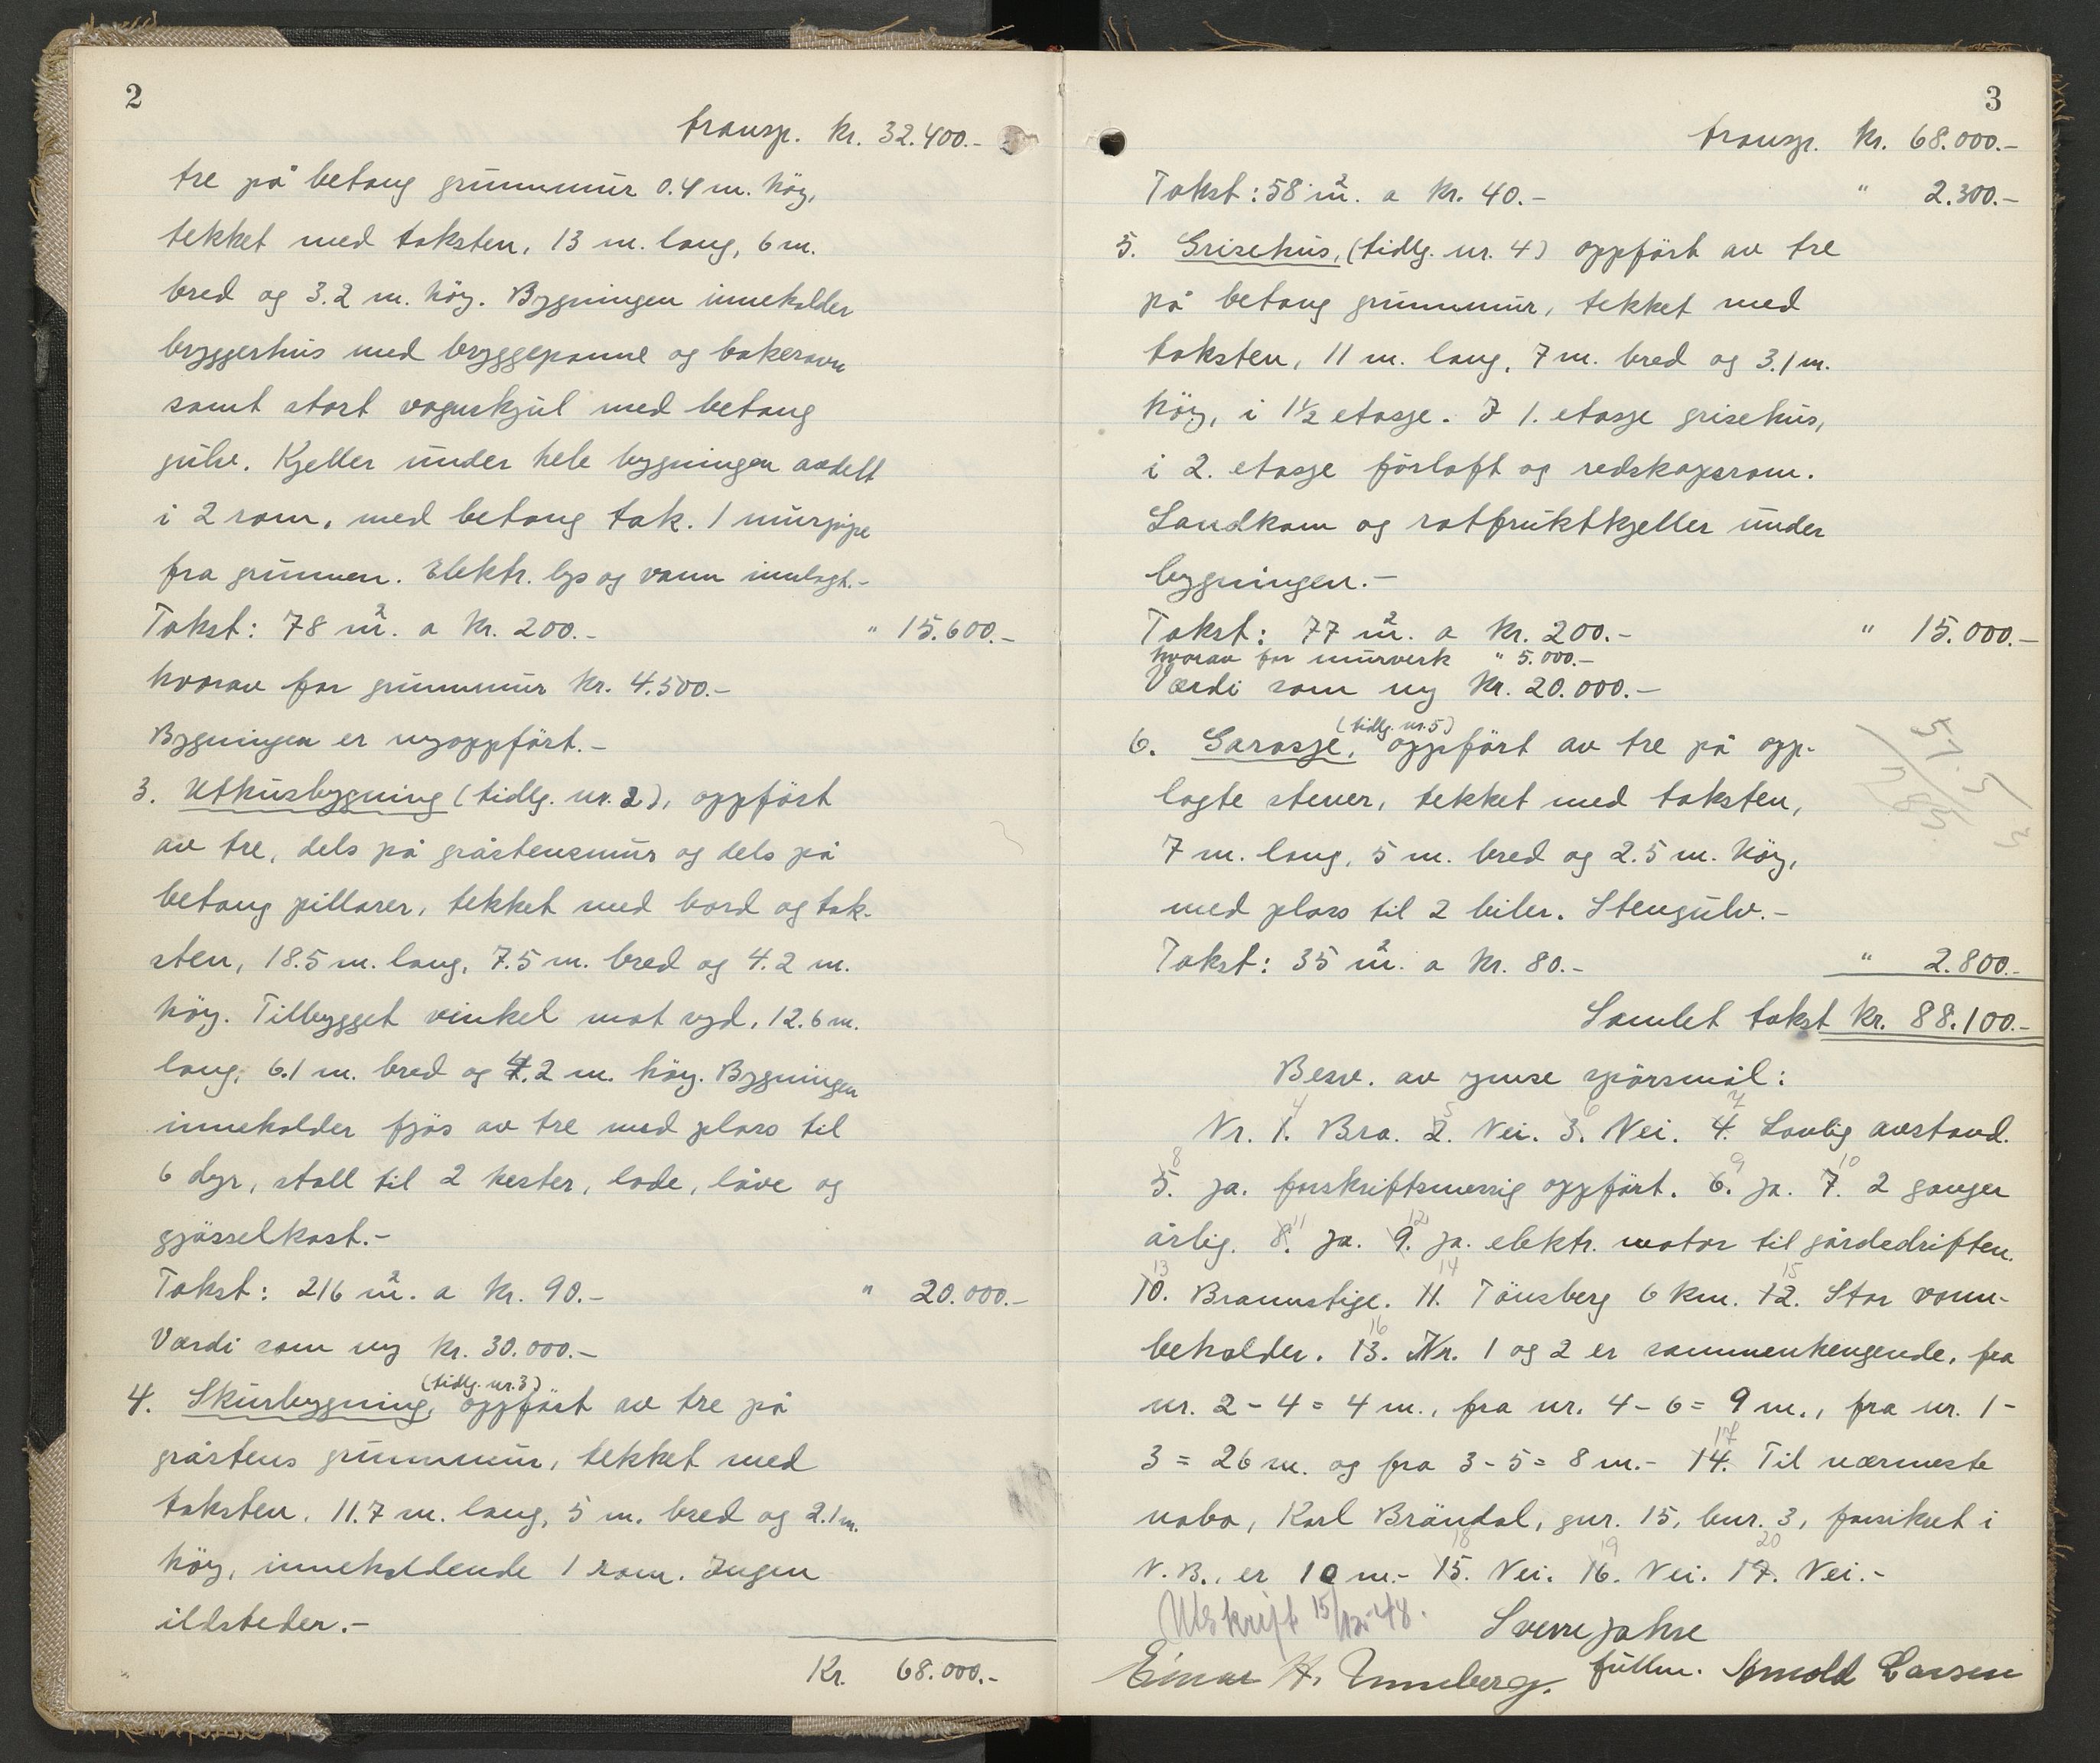 2
transp. kr. 32.400.-
tre på betong grunnmur 0.4 m. höy,
tekket med taksten, 13 m. lang, 6 m.
bred og 3.2 m. höy. Bygningen inneholder
bryggerhus med bryggepanne og bakerovn
samt stort vognskjul med betong
gulv. Kjeller under hele bygningen avdelt
i 2 rom, med betong tak. 1 murpipe
fra grunnen. Elektr. lys og vann innlagt.-
Takst: 78 m². a kr. 200.- " 15.600.-
hvorav for grunnmur kr. 4.500.-
Bygningen er nyoppfört.-
3. Uthusbygning (tidlg. nr. 2), oppfört
av tre, dels på gråstensmur og dels på
betong pillarer, tekket med bord og tak-
sten, 18.5 m. lang, 7.5 m. bred og 4.2 m.
höy. Tilbygget vinkel mot syd, 12.6 m.
lang, 6.1 m. bred og 4.2 m. höy. Bygningen
inneholder fjös av tre med plass til
6 dyr, stall til 2 hester, lade, låve og
gjösselkast.-
Takst: 216 m². a kr. 90.- " 20.000.-
Værdi som ny kr. 30.000.-
(tidlg. nr. 3)
4. Skurbygning, oppfört av tre på
gråstens grunnmur, tekket med
taksten, 11.7 m. lang, 5 m. bred og 2.1 m.
höy, inneholdende 1 rom. Ingen
ildsteder.-
Kr. 68.000.-
3
transp. kr. 68.000.-
Takst: 58 m². a kr. 40.- " 2.300.-
5. Grisehus, (tidlg. nr. 4) oppfört av tre
på betong grunnmur, tekket med
taksten, 11 m. lang, 7 m. bred og 3.1 m.
höy, i 1½ etasje. I 1. etasje grisehus,
i 2. etasje fórloft og redskapsrom.
Landkam og rotfruktkjeller under
bygningen.-
Takst: 77 m². a kr. 200.- " 15.000.-
hvorav for murverk " 5.000.-
Værdi som ny kr. 20.000.-
(tidlg. nr. 5)
6. Garasje, oppfört av tre på opp-
lagte stener, tekket med taksten,
7 m. lang, 5 m. bred og 2.5 m. höy,
med plass til 2 biler. Stengulv.-
Takst: 35 m². a kr. 80.- " 2.800.-
Samlet takst kr. 88.100.-
Besv. av ymse spörsmål:
4 5 6 7
Nr. 1. Bra. 2. Nei. 3. Nei. 4. Lovlig avstand.
8 9 10
5. ja. forskriftsmessig oppfört. 6. ja. 7. 2 ganger
11 12
årlig. 8. ja. 9. ja. elektr. motor til gårdsdriften.
13 14 15
10. Brannstige. 11. Tönsberg 6 km. 12. Stor vann-
16
beholder. 13. Nr. 1 og 2 er sammenhengende, fra
nr. 2 - 4 = 4 m., fra nr. 4 - 6 = 9 m., fra nr. 1 -
17
3 = 26 m. og fra 3 - 5 = 8 m.- 14. Til nærmeste
nabo, Karl Bröndal, gnr. 15, bnr. 3, forsikret i
18 19 20
N.B., er 10 m.- 15. Nei. 16. Nei. 17. Nei.-
Utskrift 15/12-48.
Sverre Jahre
fullm.
Einar H. Unneberg. Arnold Larsen